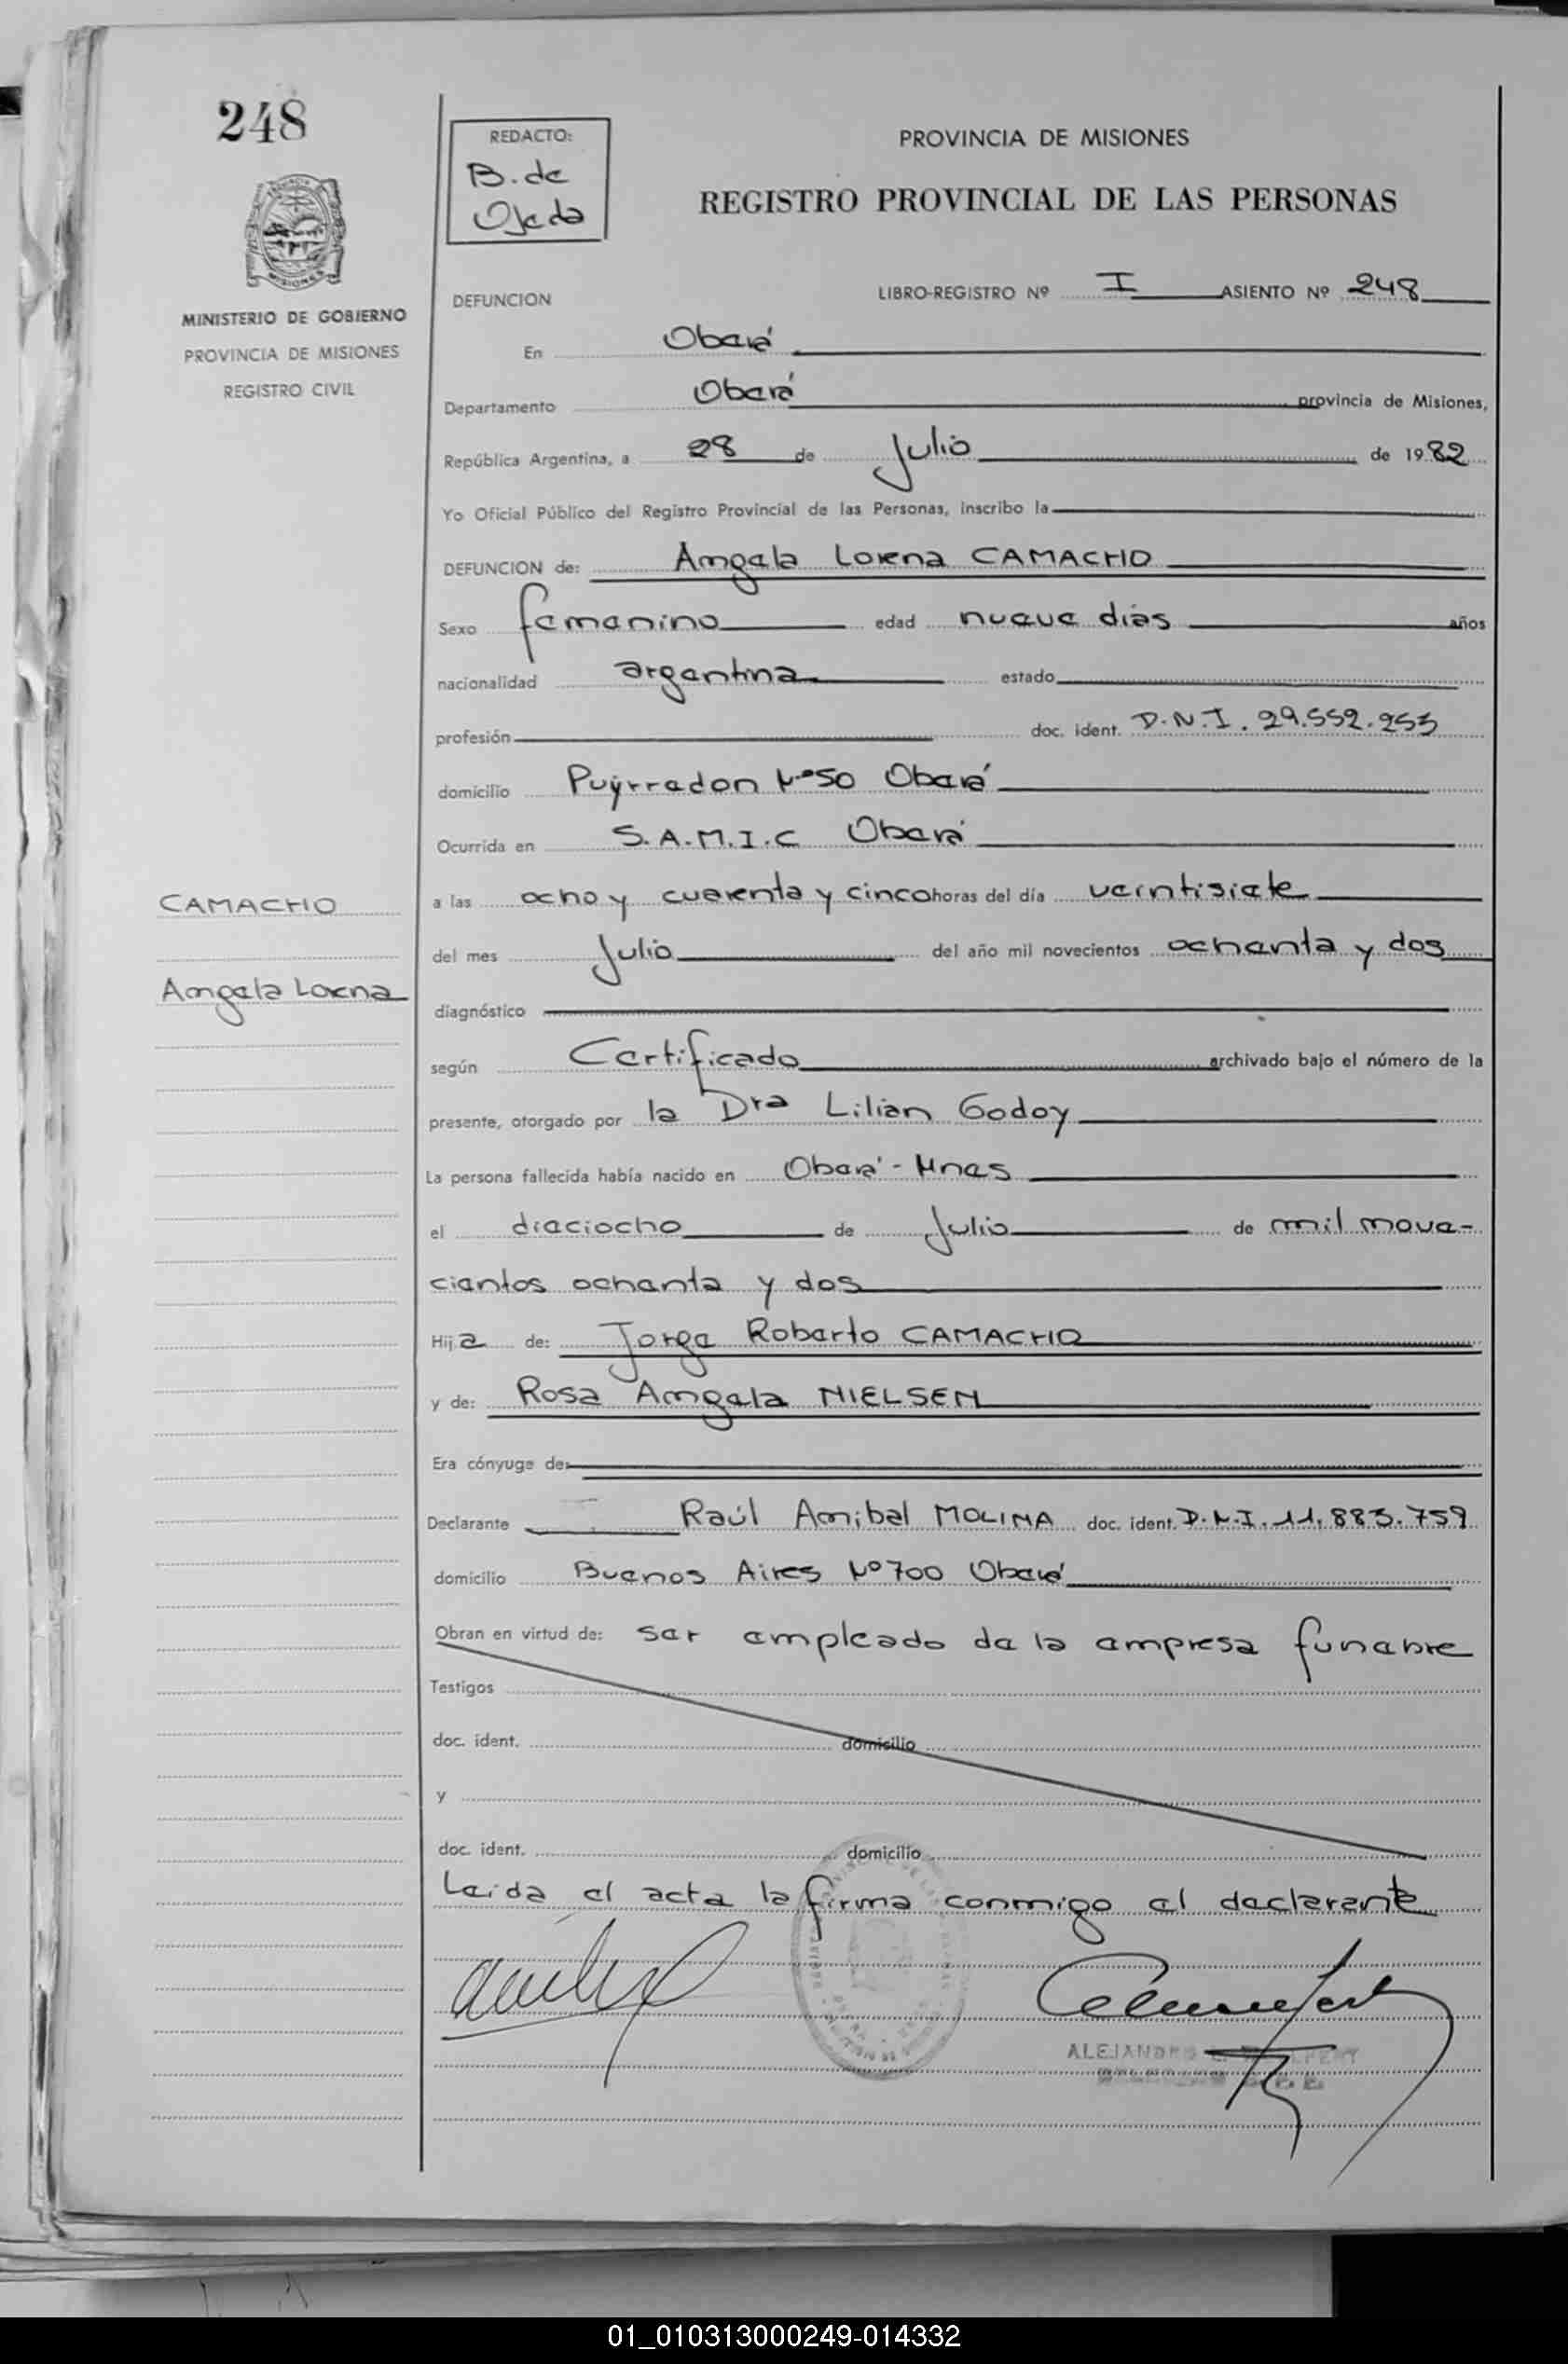 248
REDACTO:
B. de
Ojeda
PROVINCIA DE MISIONES
REGISTRO PROVINCIAL DE LAS PERSONAS
MINISTERIO DE GOBIERNO
PROVINCIA DE MISIONES
REGISTRO CIVIL
DEFUNCION
LIBRO-REGISTRO Nº I ASIENTO Nº 248
En Oberá
Departamento Oberá provincia de Misiones,
República Argentina, a 28 de Julio de 1982
Yo Oficial Público del Registro Provincial de las Personas, inscribo la
DEFUNCION de: Angela Lorena CAMACHO
Sexo femenino edad nueve días años
nacionalidad argentina estado
profesión doc. ident. D.N.I. 29.552.253
domicilio Puyrredon Nº 50 Oberá
Ocurrida en S.A.M.I.C Oberá
CAMACHO
Angela Lorena
a las ocho y cuarenta y cinco horas del día veintisiete
del mes Julio del año mil novecientos ochenta y dos
diagnóstico
según Certificado archivado bajo el número de la
presente, otorgado por la Dra Lilian Godoy
La persona fallecida había nacido en Oberá - Mnes
el dieciocho de Julio de mil nove-
cientos ochenta y dos
Hija de: Jorge Roberto CAMACHO
y de: Rosa Angela NIELSEN
Era cónyuge de:
Declarante Raúl Anibal MOLINA doc. ident. D.N.I. 11.883.759
domicilio Buenos Aires Nº 700 Oberá
Obran en virtud de: ser empleado de la empresa funebre
Testigos
doc. ident. domicilio
y
doc. ident. domicilio
Leida el acta la firma conmigo el declarante
ALEJANDRO
01_010313000249-014332